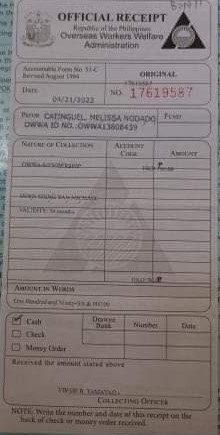 OFFICIAL RECEIPT
Republic of the Philippines
Overseas Workers Welfare
Administration
Accountable Form No. 51-C
Revised August 1994
ORIGINAL
DATE
04/21/2022
NO. 17619587
PAYOR CATINGUEL, MELISSA NODADO
OWWA ID NO.:OWWA13808439
FUND
NATURE OF COLLECTION
ACCOUNT
CODE
AMOUNT
AMOUNT IN WORDS
Cash
Check
Money Order
Drawee
Bank
Number
Date
Received the amount stated above
COLLECTING OFFICER
NOTE: Write the number and date of this receipt on the
back of check or money order received.